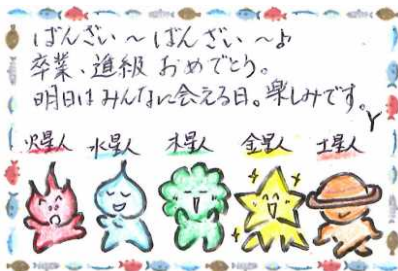 ばんざい～ばんざい～♪
卒業、進級 おめでとう。
明日はみんなに会える日。楽しみです。
Y
火星人 水星人 木星人 金星人 土星人